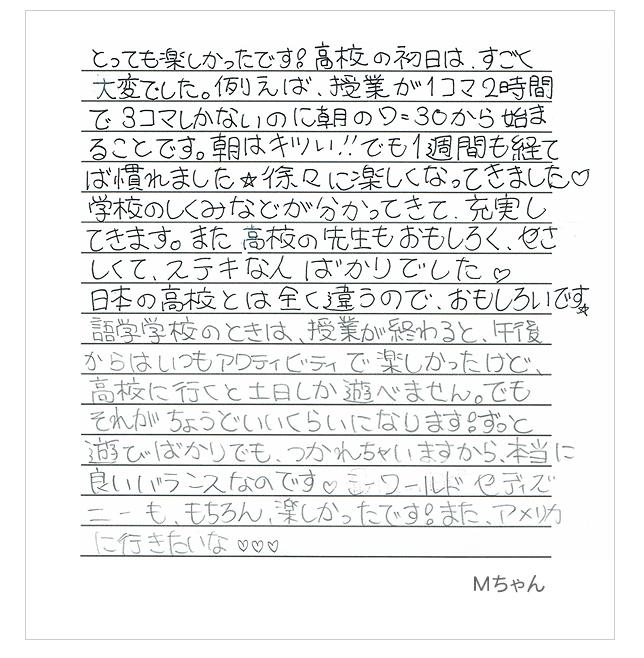 とっても楽しかったです!高校の初日は、すごく
大変でした。例えば、授業が1コマ2時間
で3コマしかないのに朝の7:30から始ま
ることです。朝はキツい!!でも1週間も経て
ば慣れました★徐々に楽しくなってきました♡
学校のしくみなどが分かってきて、充実し
てきます。また高校の先生もおもしろく、やさ
しくて、ステキな人ばかりでした♡
日本の高校とは全く違うので、おもしろいです☆
語学学校のときは、授業が終わると、午後
からはいつもアクティビティで楽しかったけど、
高校に行くと土日しか遊べません。でも
それがちょうどいいくらいになります!ずっと
遊びばかりでも、つかれちゃいますから、本当に
良いバランスなのです♡シーワールドやディズ
ニーも、もちろん、楽しかったです!また、アメリカ
に行きたいな♡♡♡
Mちゃん